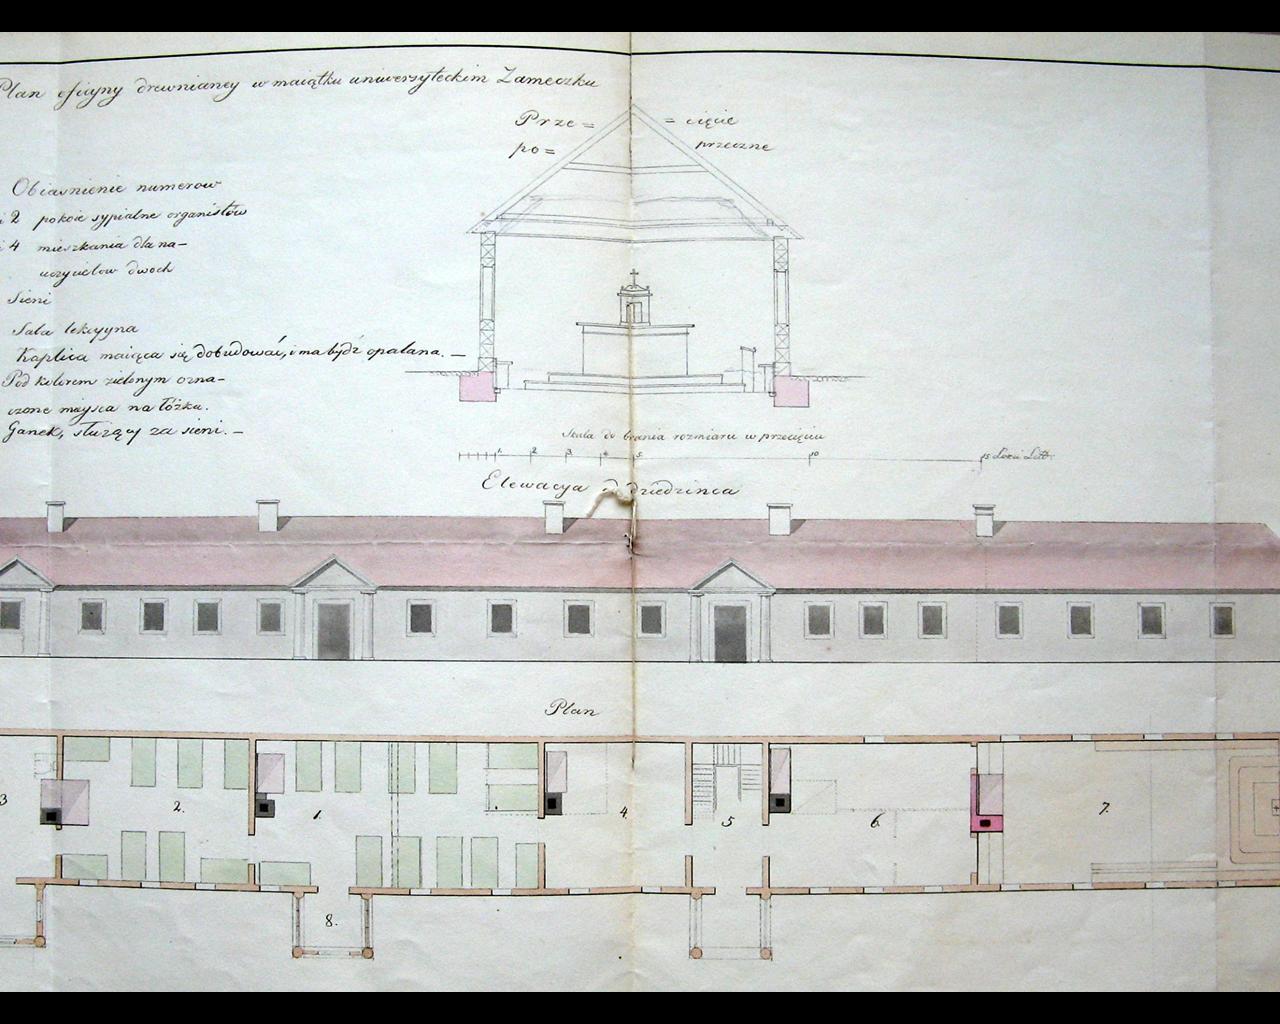 Plan oficyny drewnianey w maiątku uniwersyteckim Zameczku
Prze= =cięcie
po= przeczne
Obiasnienie numerow
i 2 pokoie sypialne organistów
i 4 mieszkania dla na-
uczycielow dwoch
Sieni
Sala lekcyyna
Kaplica maiąca się dobudować, i ma bydź opalana. —
Pod kolorem zielonym ozna-
czone mieysca na łóżka.
Ganek, służący za sieni. —
Skala do brania rozmiaru w przecięciu
1 2 3 4 5 10 15 Łokci Lit:
Elewacya od dziedzinca
Plan
3 2. 1. 4. 5 6. 7.
8.